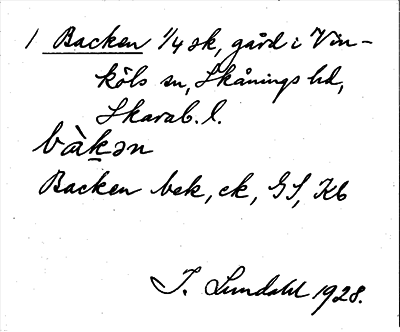 1 Backen 1/4 sk, gård i Vin-
köls sn, Skånings hd,
Skarab. l.
bàkən
Backen bek, ek, GS, Kb
I. Lundahl 1928.